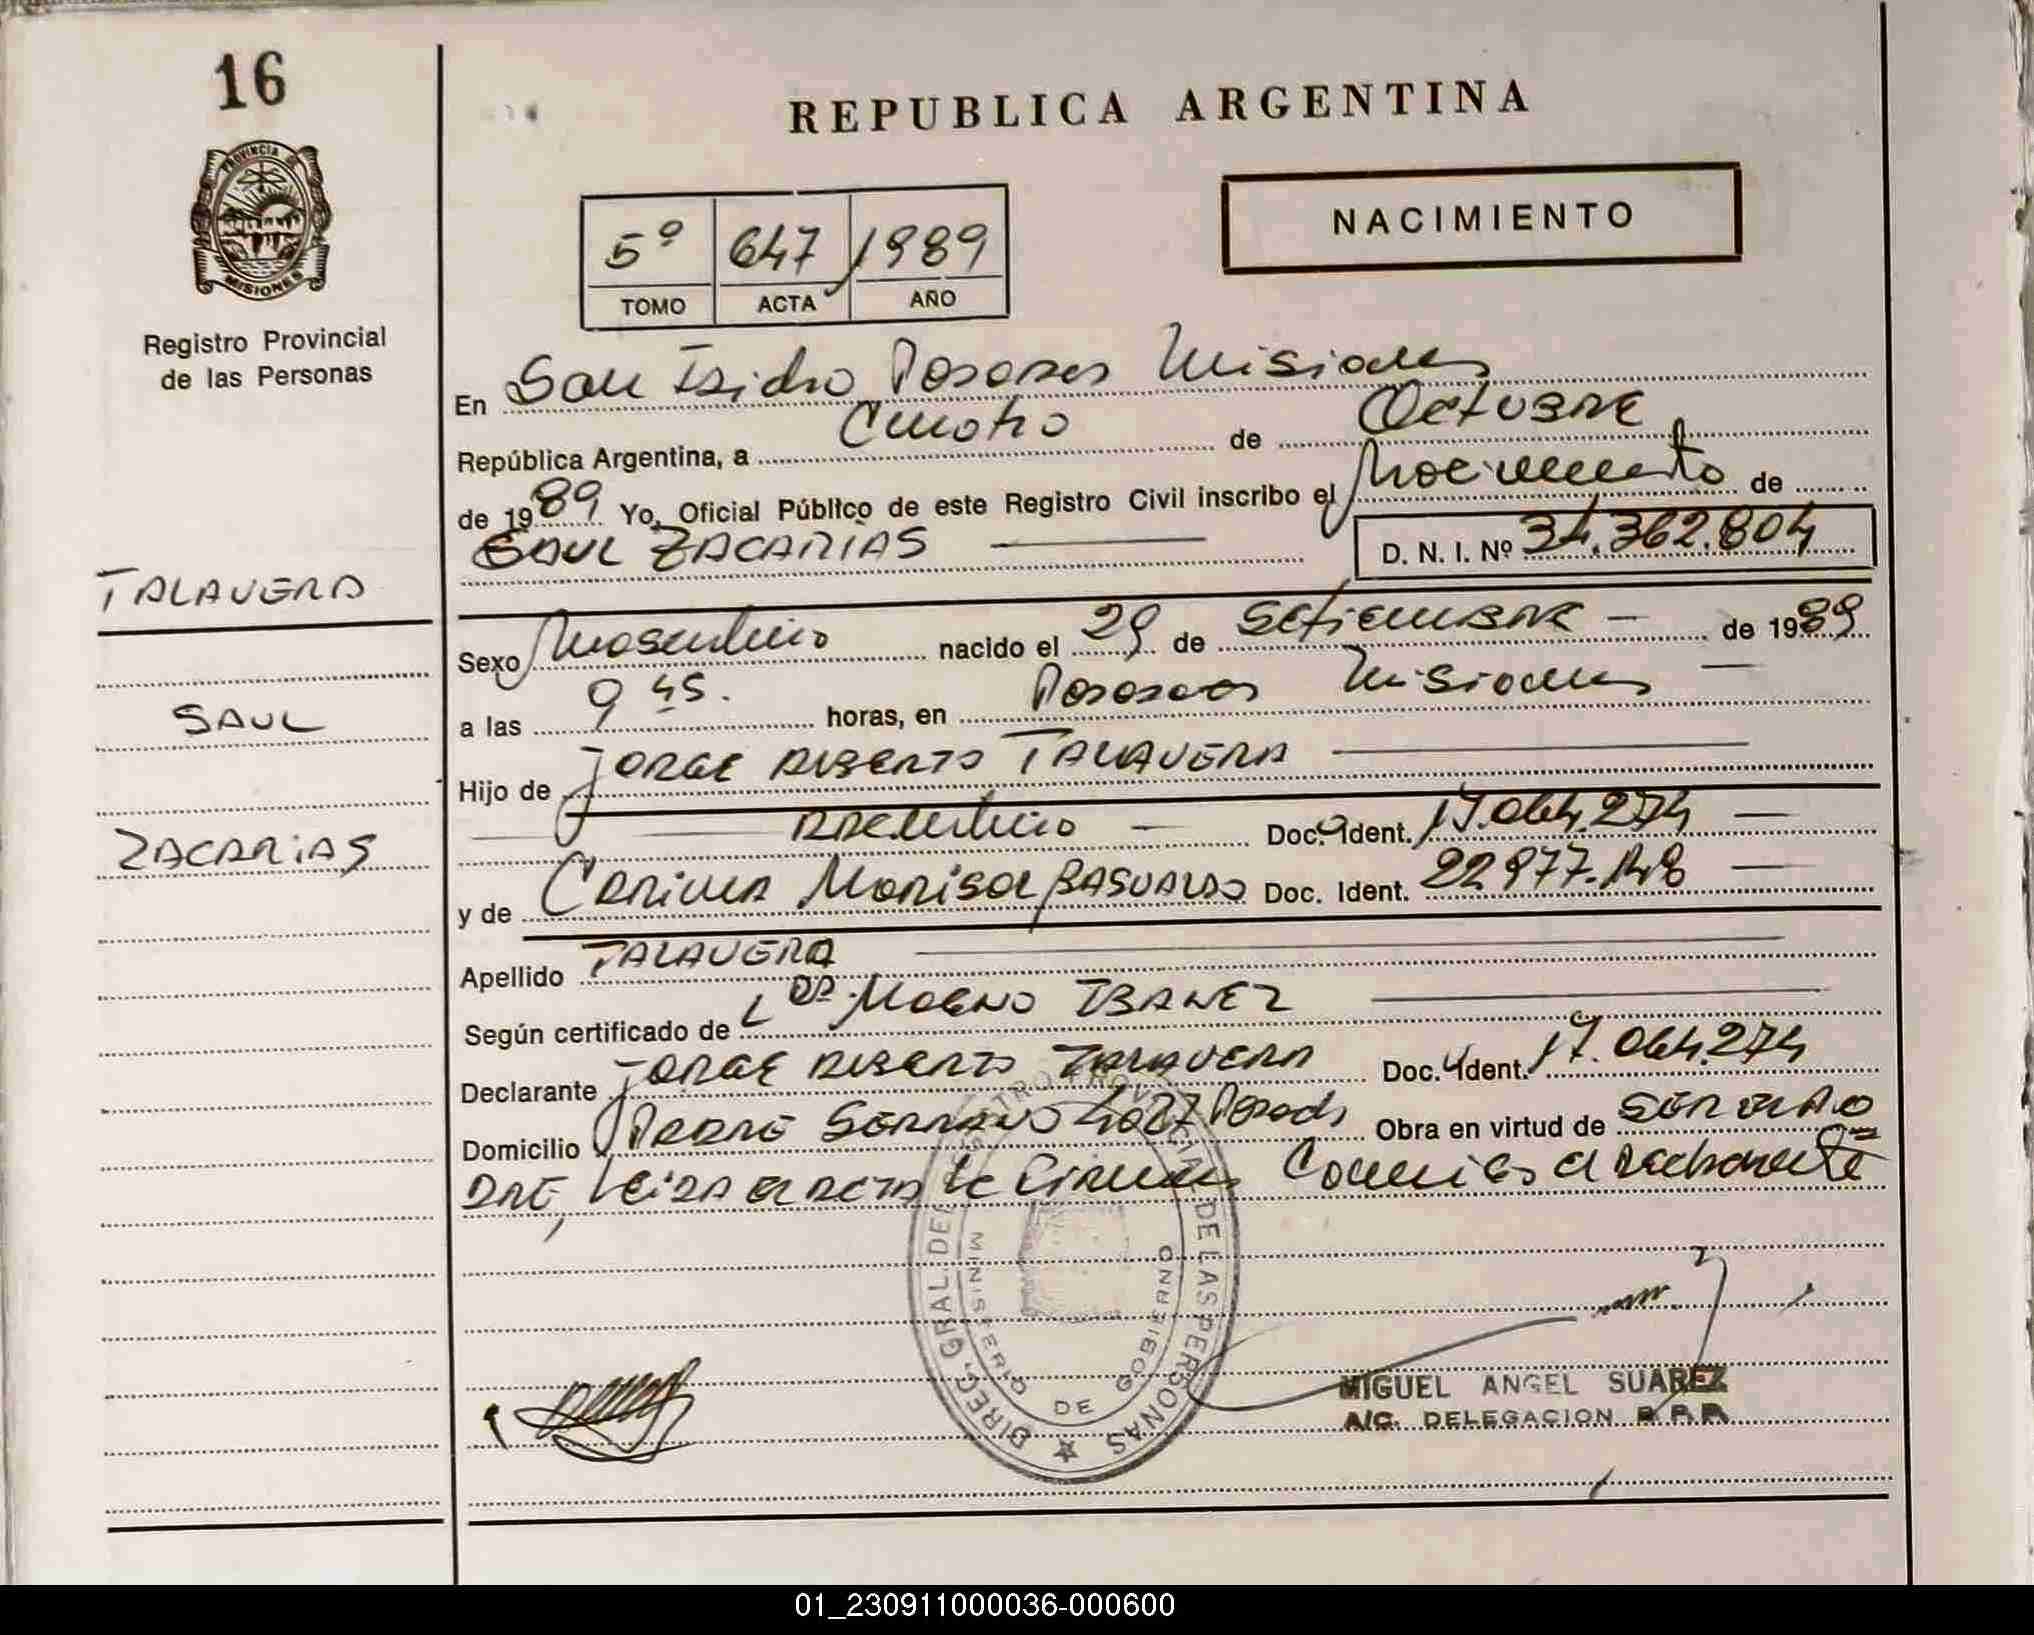 16
PROVINCIA DE
MISIONES
Registro Provincial
de las Personas
TALAVERA
SAUL
ZACARIAS
REPUBLICA ARGENTINA
NACIMIENTO
5º 647 1989
TOMO ACTA AÑO
En San Isidro Posadas Misiones
República Argentina, a Cuatro de Octubre
de 1989 Yo, Oficial Público de este Registro Civil inscribo el Nacimiento de
SAUL ZACARIAS D. N. I. Nº 34.362.804
Sexo Masculino nacido el 29 de Setiembre de 1989
a las 9 45. horas, en Posadas Misiones
Hijo de JORGE ALBERTO TALAVERA
Argentino Doc. Ident. 17.064.274
y de Carina Marisol BASUALDO Doc. Ident. 22.977.148
Apellido TALAVERA
Según certificado de Magno IBAÑEZ
Declarante JORGE ALBERTO TALAVERA Doc. Ident. 17.064.274
Domicilio Padre SERRANO Posadas Obra en virtud de SER
PADRE, Leida el acta la Firman Conmigo el declarante
DIREC. GRAL DEL REGISTRO PROVINCIAL DE LAS PERSONAS
MINISTERIO DE GOBIERNO
MIGUEL ANGEL SUAREZ
A/C. DELEGACION R.P.P.
01_230911000036-000600